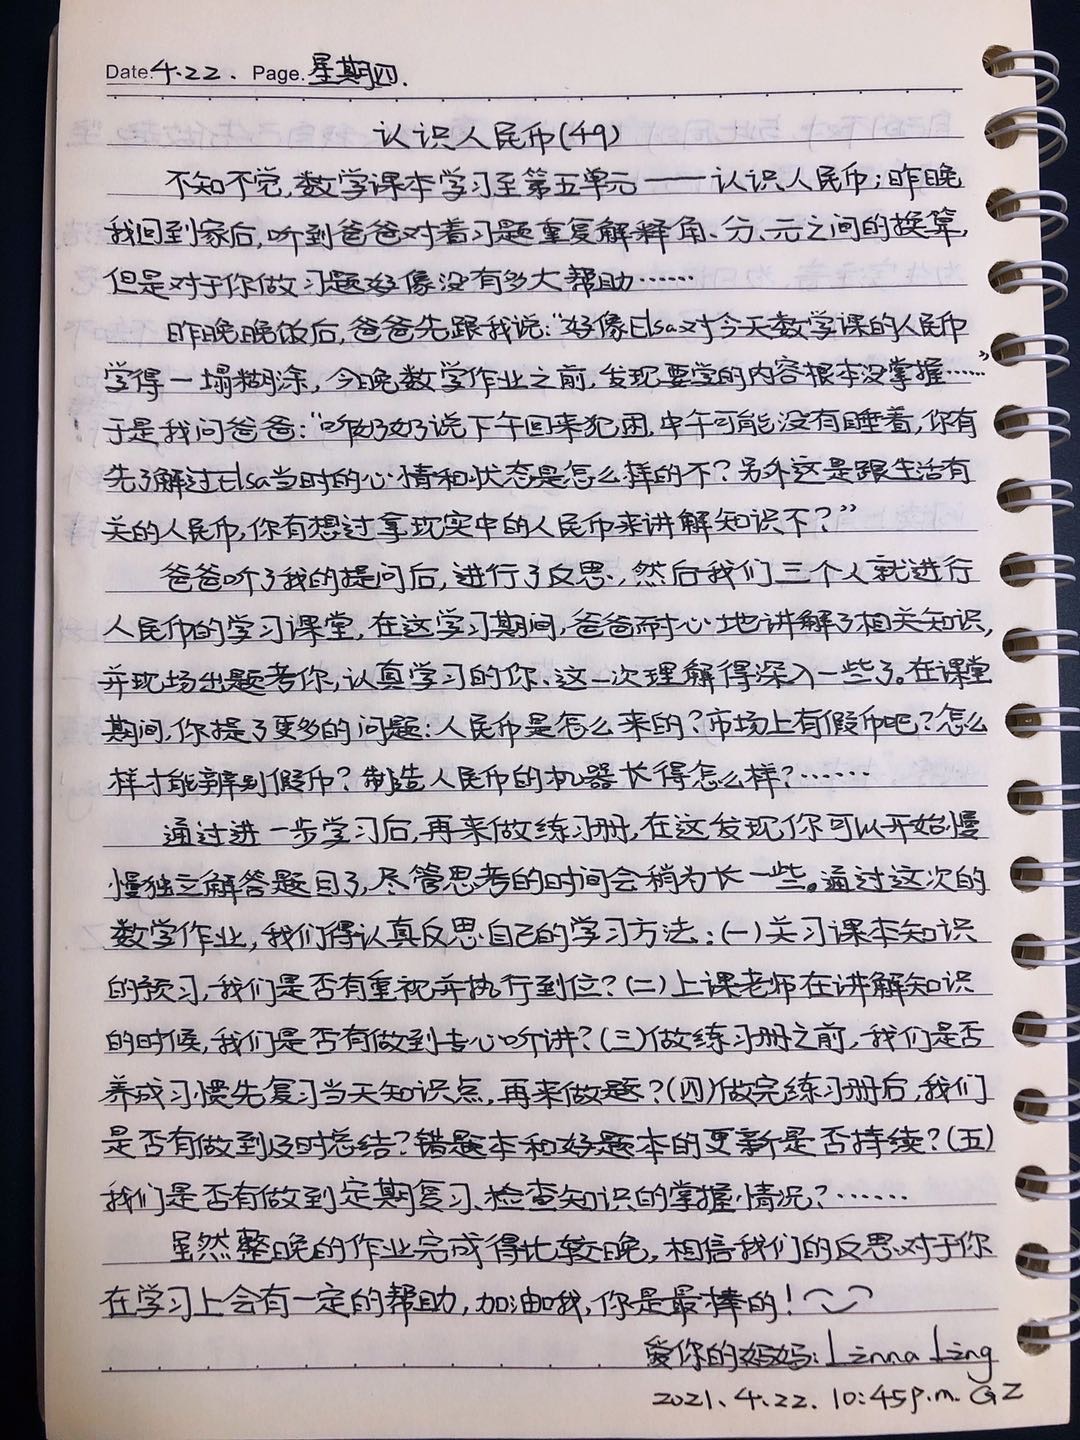 Date: 4.22. Page. 星期四.
认识人民币(49)
不知不觉,数学课本学习至第五单元——认识人民币;昨晚
我回到家后,听到爸爸对着习题重复解释角、分、元之间的换算,
但是对于你做习题好像没有多大帮助……
昨晚晚饭后,爸爸先跟我说:“好像Elsa对今天数学课的人民币
学得一塌糊涂,今晚数学作业之前,发现要学的内容根本没掌握……”
于是我问爸爸:“听奶奶说下午回来犯困,中午可能没有睡着,你有
先了解过Elsa当时的心情和状态是怎么样的不?另外这是跟生活有
关的人民币,你有想过拿现实中的人民币来讲解知识不?”
爸爸听了我的提问后,进行了反思,然后我们三个人就进行
人民币的学习课堂,在这学习期间,爸爸耐心地讲解了相关知识,
并现场出题考你,认真学习的你、这一次理解得深入一些了。在课堂
期间,你提了更多的问题:人民币是怎么来的?市场上有假币吧?怎么
样才能辨别假币?制造人民币的机器长得怎么样?……
通过进一步学习后,再来做练习册,在这发现你可以开始慢
慢独立解答题目了,尽管思考的时间会稍为长一些。通过这次的
数学作业,我们得认真反思自己的学习方法:(一)关习课本知识
的预习,我们是否有重视并执行到位?(二)上课老师在讲解知识
的时候,我们是否有做到专心听讲?(三)做练习册之前,我们是否
养成习惯先复习当天知识点,再来做题?(四)做完练习册后,我们
是否有做到及时总结?错题本和好题本的更新是否持续?(五)
我们是否有做到定期复习、检查知识的掌握情况?……
虽然整晚的作业完成得比较晚,相信我们的反思对于你
在学习上会有一定的帮助,加油哦,你是最棒的!
爱你的妈妈:Linna Ling
2021.4.22. 10:45p.m. GZ